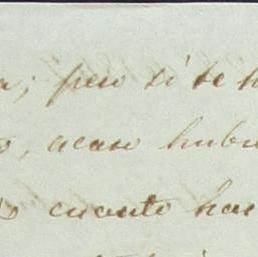 ; pero si se
, acaso hubi
cuanto hac